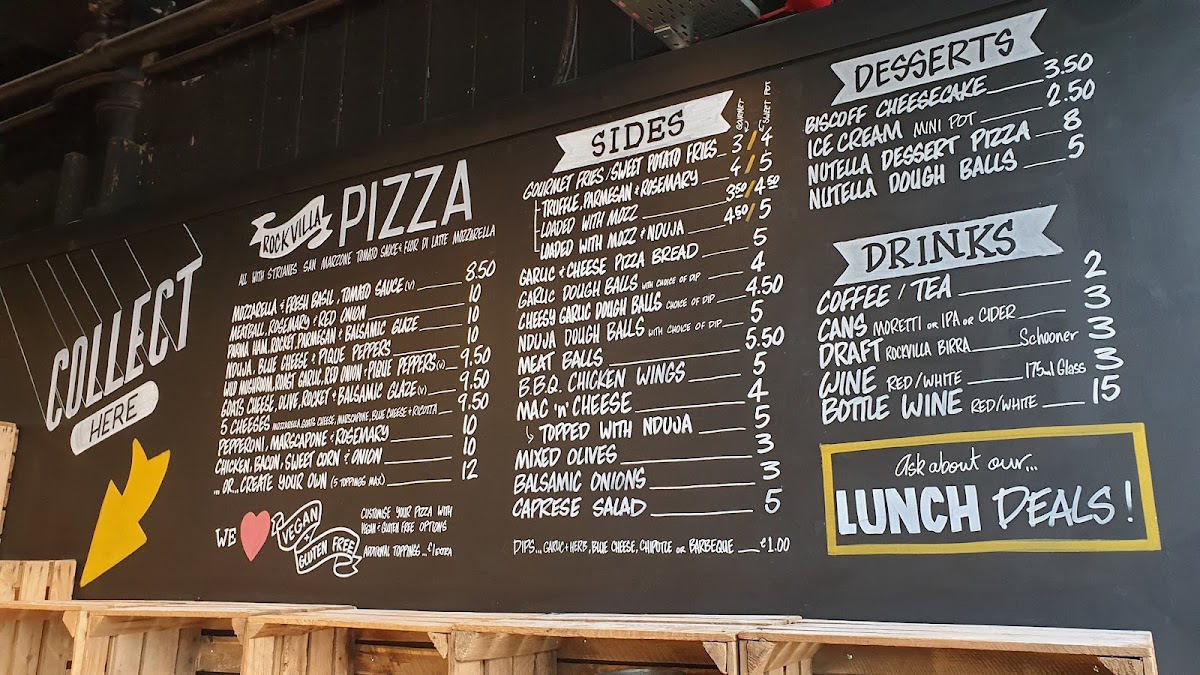 COLLECT
HERE
ROCKVILLA
PIZZA
ALL WITH STRIANES SAN MARZONE TOMATO SAUCE & FIOR DI LATTE MOZZARELLA
MOZZARELLA & FRESH BASIL, TOMATO SAUCE (V) 8.50
MEATBALL, ROSEMARY & RED ONION 10
PARMA HAM, ROCKET, PARMESAN & BALSAMIC GLAZE 10
NDUJA, BLUE CHEESE & PIQUE PEPPERS 10
WILD MUSHROOM, ROAST GARLIC, RED ONION & PIQUE PEPPERS (V) 9.50
GOATS CHEESE, OLIVE, ROCKET & BALSAMIC GLAZE (V) 9.50
5 CHEESES MOZZARELLA, GOATS CHEESE, MARSCAPONE, BLUE CHEESE & RICOTTA 9.50
PEPPERONI, MARSCAPONE & ROSEMARY 10
CHICKEN, BACON, SWEET CORN & ONION 10
... OR... CREATE YOUR OWN (5 TOPPINGS MAX) 12
WE
VEGAN
GLUTEN FREE
CUSTOMISE YOUR PIZZA WITH
VEGAN & GLUTEN FREE OPTIONS
ADDITIONAL TOPPINGS...
SIDES
GOURMET / SWEET POT
GOURMET FRIES / SWEET POTATO FRIES 3 / 4
TRUFFLE, PARMESAN & ROSEMARY 4 / 5
LOADED WITH MOZZ 3.50 / 4.50
LOADED WITH MOZZ & NDUJA 4.50 / 5
GARLIC & CHEESE PIZZA BREAD 5
GARLIC DOUGH BALLS WITH CHOICE OF DIP 4
CHEESY GARLIC DOUGH BALLS CHOICE OF DIP 4.50
NDUJA DOUGH BALLS WITH CHOICE OF DIP 5
MEAT BALLS 5.50
B.B.Q. CHICKEN WINGS 5
MAC 'n' CHEESE 4
TOPPED WITH NDUJA 5
MIXED OLIVES 3
BALSAMIC ONIONS 3
CAPRESE SALAD 5
DIPS... GARLIC & HERB, BLUE CHEESE, CHIPOTLE OR BARBEQUE £1.00
DESSERTS
BISCOFF CHEESECAKE 3.50
ICE CREAM MINI POT 2.50
NUTELLA DESSERT PIZZA 8
NUTELLA DOUGH BALLS 5
DRINKS
COFFEE / TEA 2
CANS MORETTI OR IPA OR CIDER 3
DRAFT ROCKVILLA BIRRA Schooner 3
WINE RED/WHITE 175ml Glass 3
BOTTLE WINE RED/WHITE 15
Ask about our...
LUNCH DEALS!